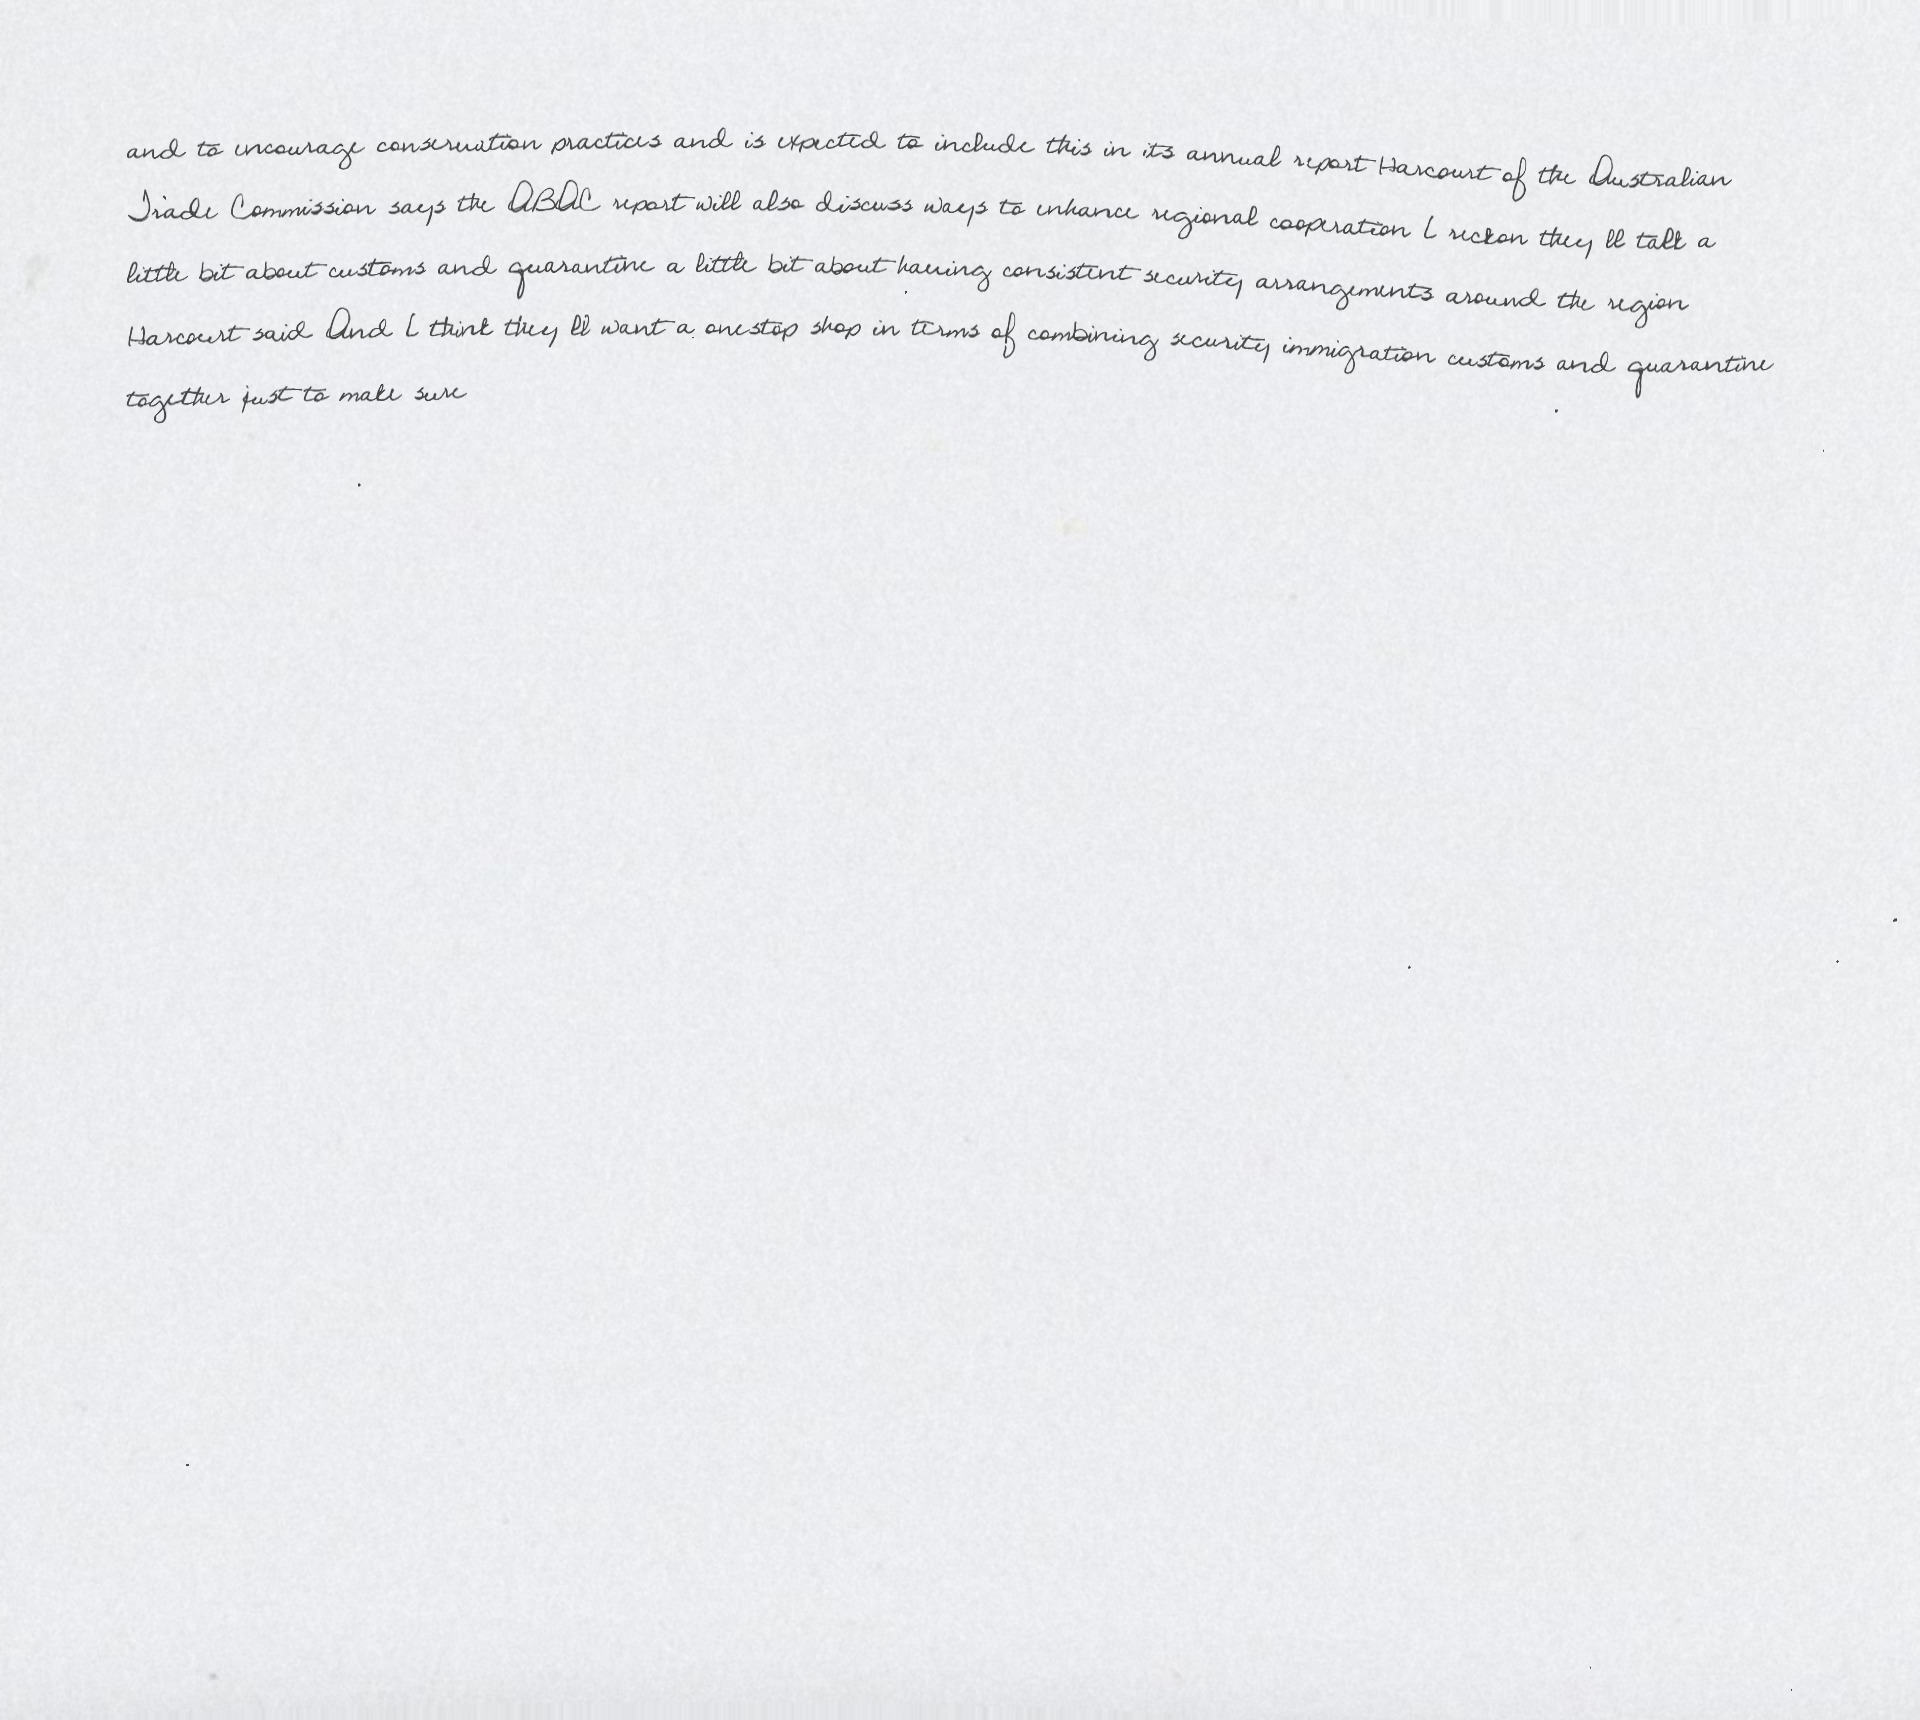 and to encourage conservation practices and is expected to include this in its annual report Harcourt of the Australian
Trade Commission says the ABAC report will also discuss ways to enhance regional cooperation I reckon they ll talk a
little bit about customs and quarantine a little bit about having consistent security arrangements around the region
Harcourt said And I think they ll want a onestop shop in terms of combining security immigration customs and quarantine
together just to make sure